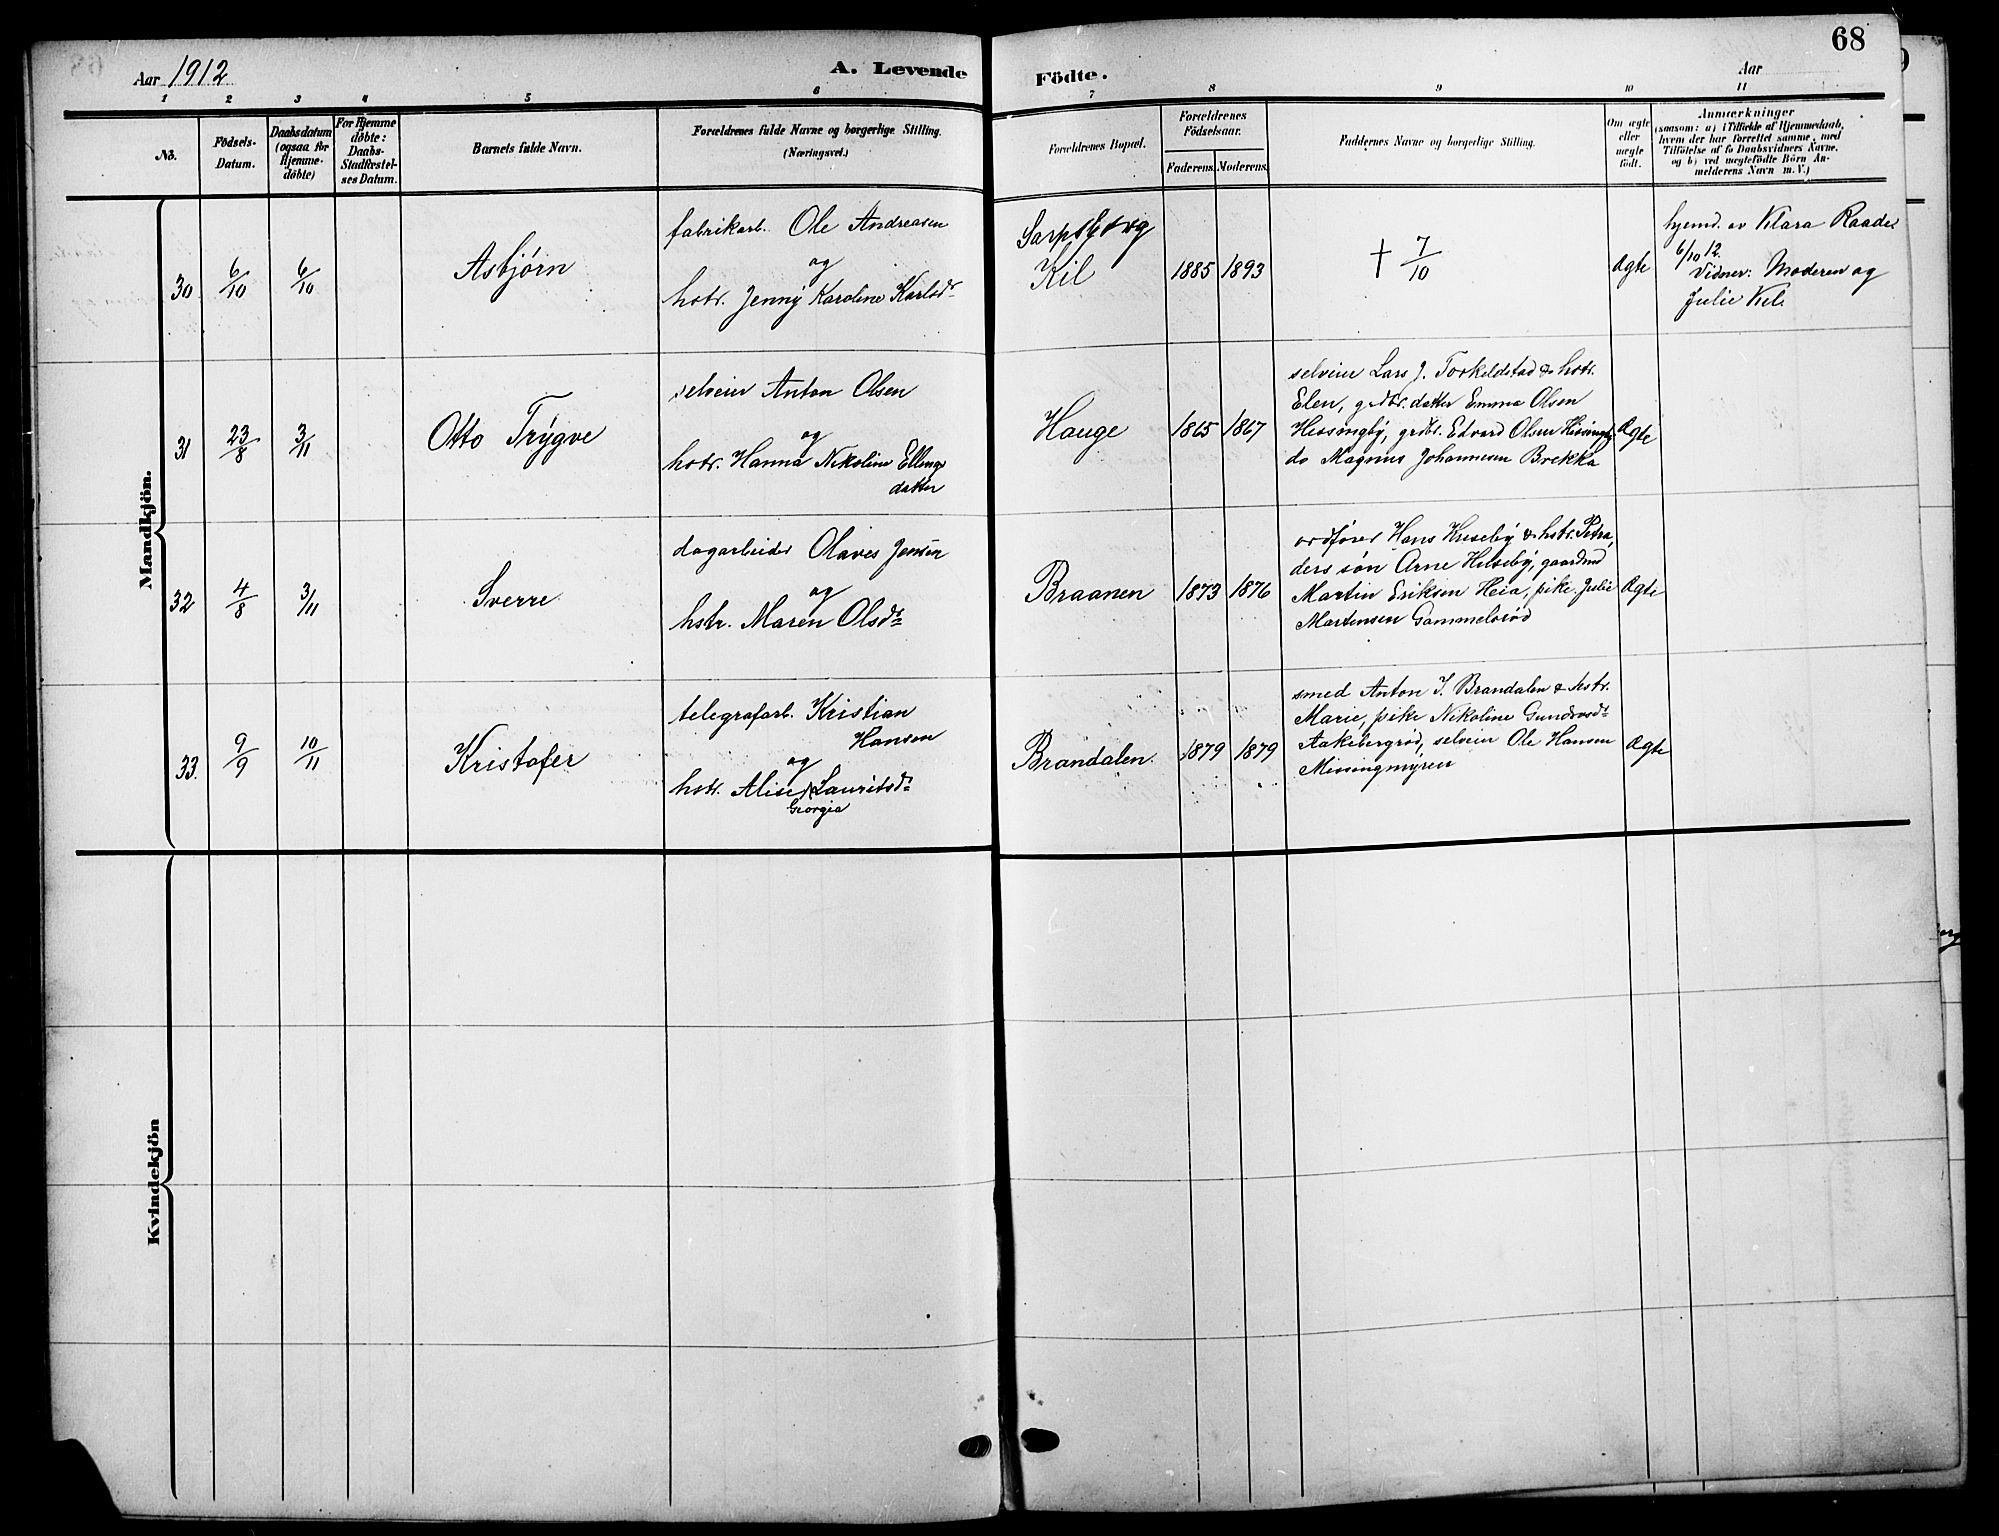 68
Aar 1912
A. Levende Födte.
Aar
1 2 3 4 5 6 7 8 9 10 11
No.
Födsels-
Datum.
Daabsdatum
(ogsaa for
Hjemme-
døbte)
For Hjemme
døbte:
Daabs-
Stadfæstel-
ses Datum.
Barnets fulde Navn.
Forældrenes fulde Navne og borgerlige Stilling.
(Næringsvei.)
Forældrenes Bopæl.
Forældrenes
Födselsaar.
Faderens. Moderens.
Faddernes Navne og borgerlige Stilling.
Om ægte
eller
uægte
født.
Anmærkninger
(saasom: a) i Tilfælde af Hjemmedaab,
hvem der har forrettet samme, med
Tilføielse af to Daabsvidners Navne,
og b) ved uægtefödte Börn An-
melderens Navn m. V.)
Mandkjön.
30 6/10 6/10 Asbjørn
fabrikarb. Ole Andreasen
og
hstr. Jenny Karoline Karlsdr
Sarpsborg
Kil
1885 1893
† 7/10
Ægte
hjemd. av Klara Raade
6/10 12.
Vidner: Moderen og
Julie Kil.
31 23/8 3/11 Otto Trygve
selveier Anton Olsen
og
hstr. Hanna Nikoline Ellings
datter
Hauge
1865 1867
selveier Lars J. Torkeldstad & hstr.
Elen, grdbr. datter Emma Olsen
Hessingby, grdbr. Edvard Olsen Hissingby
do Magnus Johannesen Brekka
Ægte
32 4/8 3/11 Sverre
dagarbeider Olaves Jensen
og
hstr. Maren Olsdr
Braanen
1873 1876
ordfører Hans Huseby & hstr. Petra,
ders søn Arne Helseby, gaardmd
Martin Eriksen Heia, pike Julie
Martensen Gammelsrød
Ægte
33. 9/9 10/11 Kristofer
telegrafarb. Kristian
Hansen
og
hstr. Alise Lauritsdr
Georgia
Brandalen.
1879 1879
smed Anton I. Brandalen & hstr.
Marie, pike Nikoline Gundrosdr
Aakebergrød, selveier Ole Hansen
Missingmyren
Ægte
Kvindekjön